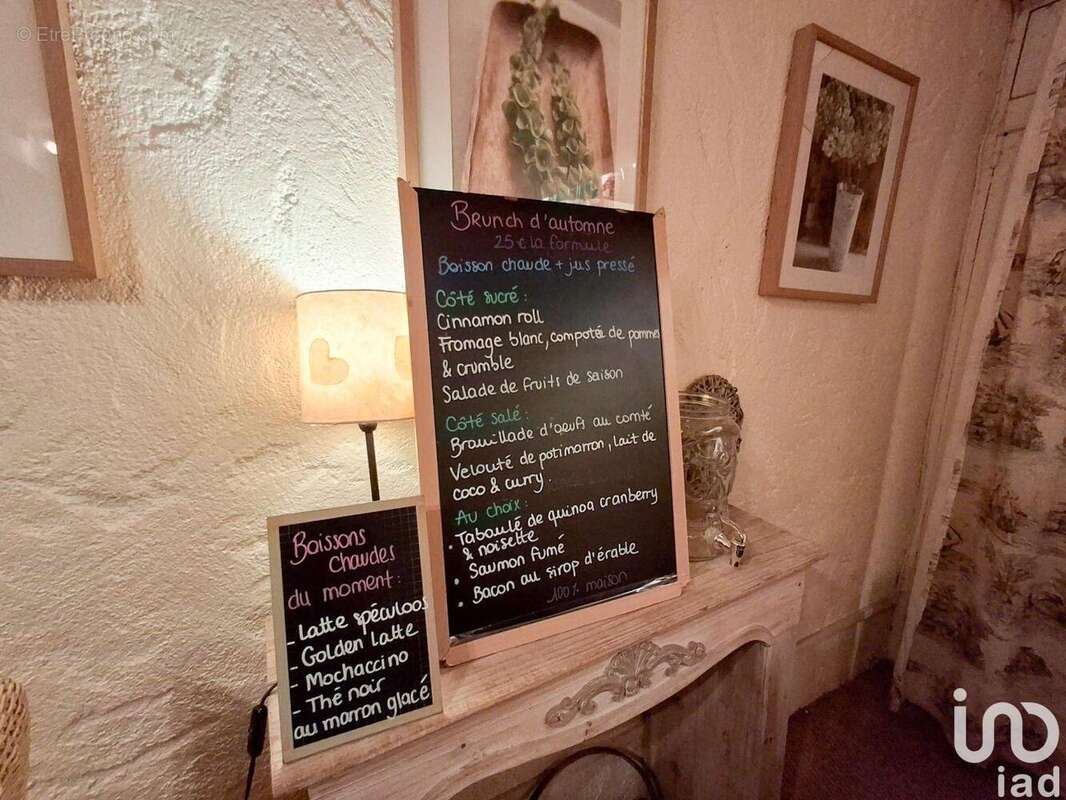 © EtreProprio.com
Brunch d'automne
25€ la formule
Boisson chaude + jus pressé
Côté sucré :
Cinnamon roll
Fromage blanc, compotée de pommes
& crumble
Salade de fruits de saison
Côté salé :
Brouillade d'oeufs au comté
Velouté de potimarron, lait de
coco & curry.
Au choix :
• Taboulé de quinoa cranberry
& noisette
• Saumon fumé
• Bacon au sirop d'érable
100% maison
Boissons
chaudes
du moment :
- Latte spéculoos
- Golden latte
- Mochaccino
- Thé noir
au marron glacé
in
iad